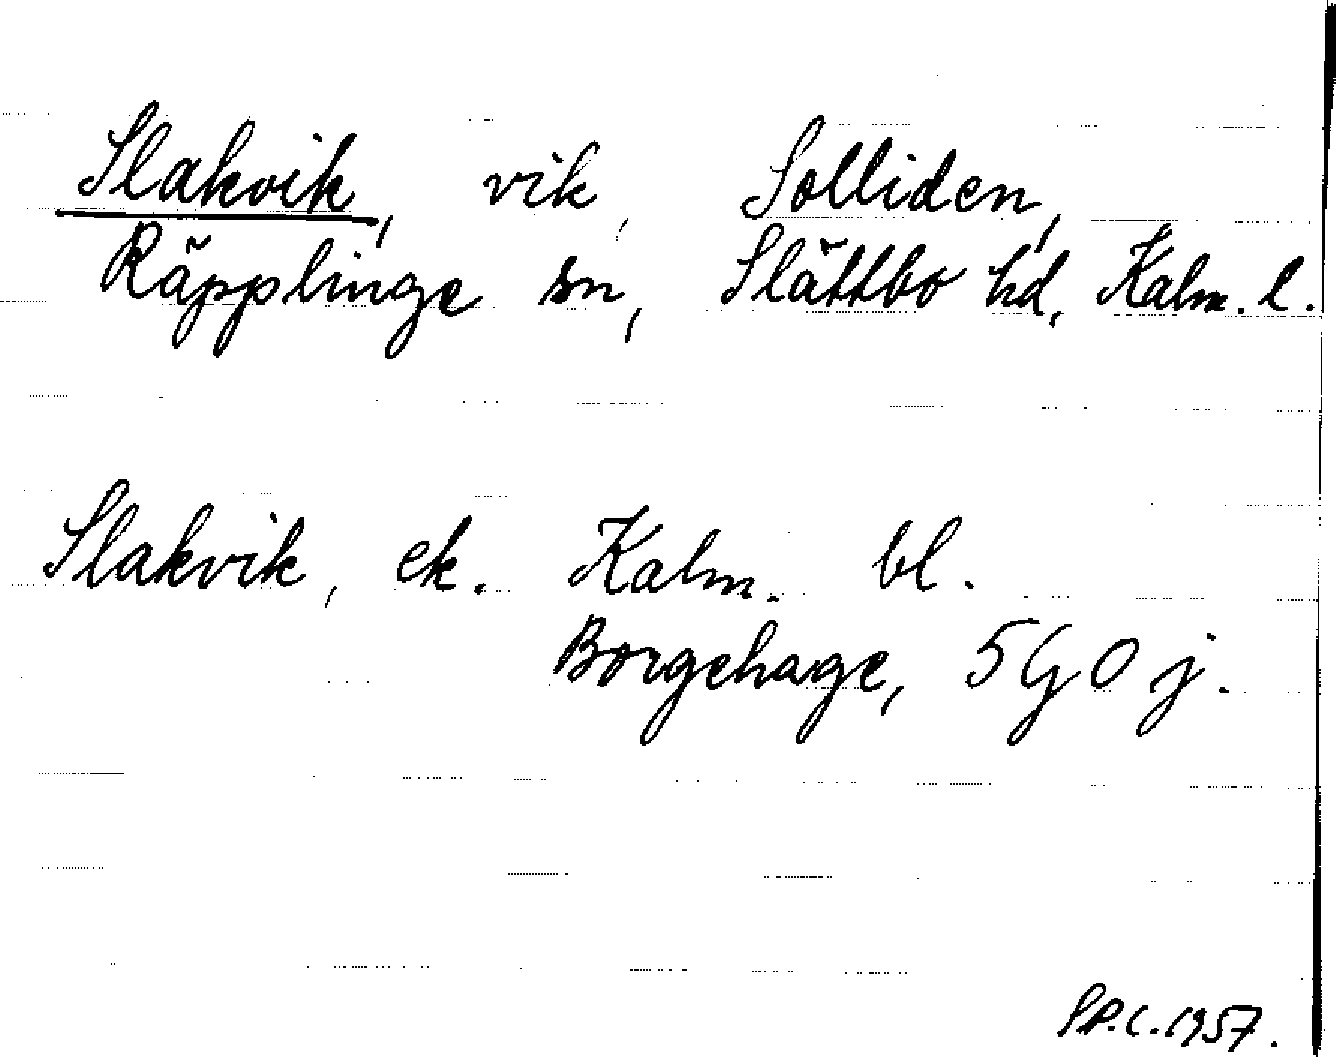 Slakvik, vik, Solliden,
Räpplinge sn, Slättbo hd, Kalm. l.
Slakvik, ek. Kalm. bl.
Borgehage, 5 G 0 j.
SP.C. 1957.